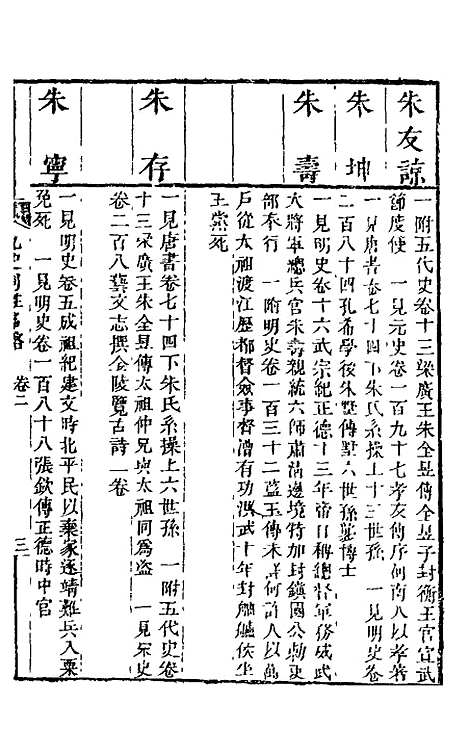 朱友諒
一附五代史卷十三梁廣王朱全昱傳全昱子封衡王官宣武
節度使 一見元史卷一百九十七孝友傳序河南人以孝著
朱坤
一見唐書卷七十四下朱氏系操上十三世孫 一見明史卷
二百八十四孔希學後朱墅傳墅六世孫墅博士
朱壽
一見明史卷十六武宗紀正德十三年帝自稱總督軍務威武
大將軍總兵官朱壽親統六師肅清邊境特加封鎮國公勅吏
部奉行 一附明史卷一百三十二藍玉傳未詳何許人以萬
戶從太祖渡江歷都督僉事督漕有功洪武十年封舳艫侯坐
玉黨死
朱存
一見唐書卷七十四下朱氏系操上六世孫 一附五代史卷
十三梁廣王朱全昱傳太祖仲兄與太祖同為盜 一見宋史
卷二百八藝文志撰金陵覽古詩二卷
朱寧
一見明史卷五成祖紀建文時北平民以棄家逐靖難兵入粟
免死 一見明史卷一百八十八張欽傳正德時中官
九史同姓名略 卷二 三